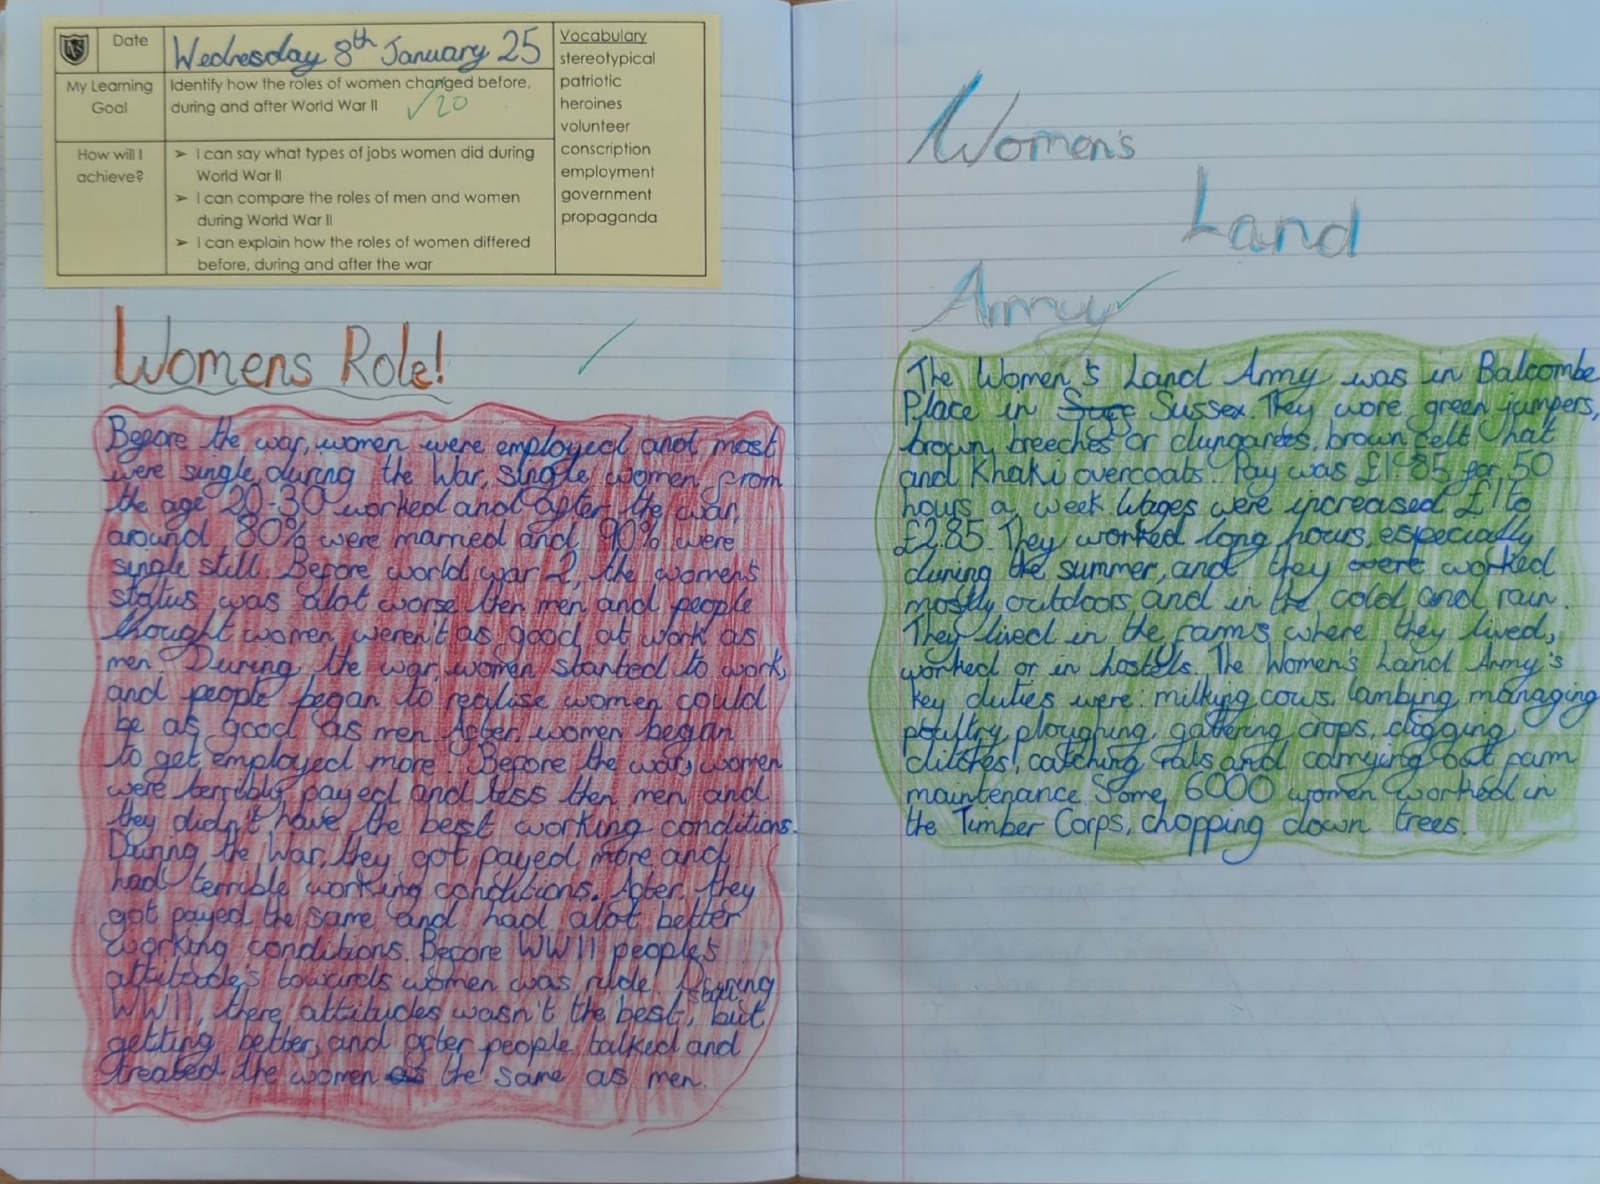 Date
Wednesday 8th January 25
My Learning
Goal
Identify how the roles of women changed before,
during and after World War II
How will I
achieve?
➢ I can say what types of jobs women did during
World War II
➢ I can compare the roles of men and women
during World War II
➢ I can explain how the roles of women differed
before, during and after the war
Vocabulary
stereotypical
patriotic
heroines
volunteer
conscription
employment
government
propaganda
Womens Role!
Before the war, women were employed and most
were single, during the War, single women from
the age 20-30 worked and after the war,
around 80% were married and 90% were
single still. Before world war 2, the women's
status was alot worse then men and people
thought women weren't as good at work as
men. During the war, women started to work,
and people began to realise women could
be as good as men. After, women began
to get employed more. Before the war, women
were terribly payed and less then men and
they didn't have the best working conditions.
During the War, they got payed more and
had terrible working conditions. After, they
got payed the same and had alot better
working conditions. Before WWII people's
attitude's towards women was rude. During
WWII, there attitudes wasn't the best, but
getting better, and after people talked and
treated the women the same as men.
Women's
Land
Army
The Women's Land Army was in Balcombe
Place in Sussex. They wore green jumpers,
brown breeches or dungarees, brown felt hat
and Khaki overcoats. Pay was for 50
hours a week. Wages were increased £1 to
£2.85. They worked long hours, especially
during the summer, and they worked
mostly outdoors and in the cold and rain.
They lived in the farms where they lived,
worked or in hostels. The Women's Land Army's
key duties were: milking cows, lambing, managing
poultry, ploughing, gathering crops, digging
ditches, catching rats and carrying out farm
maintenance. Some 6000 women worked in
the Timber Corps, chopping down trees.